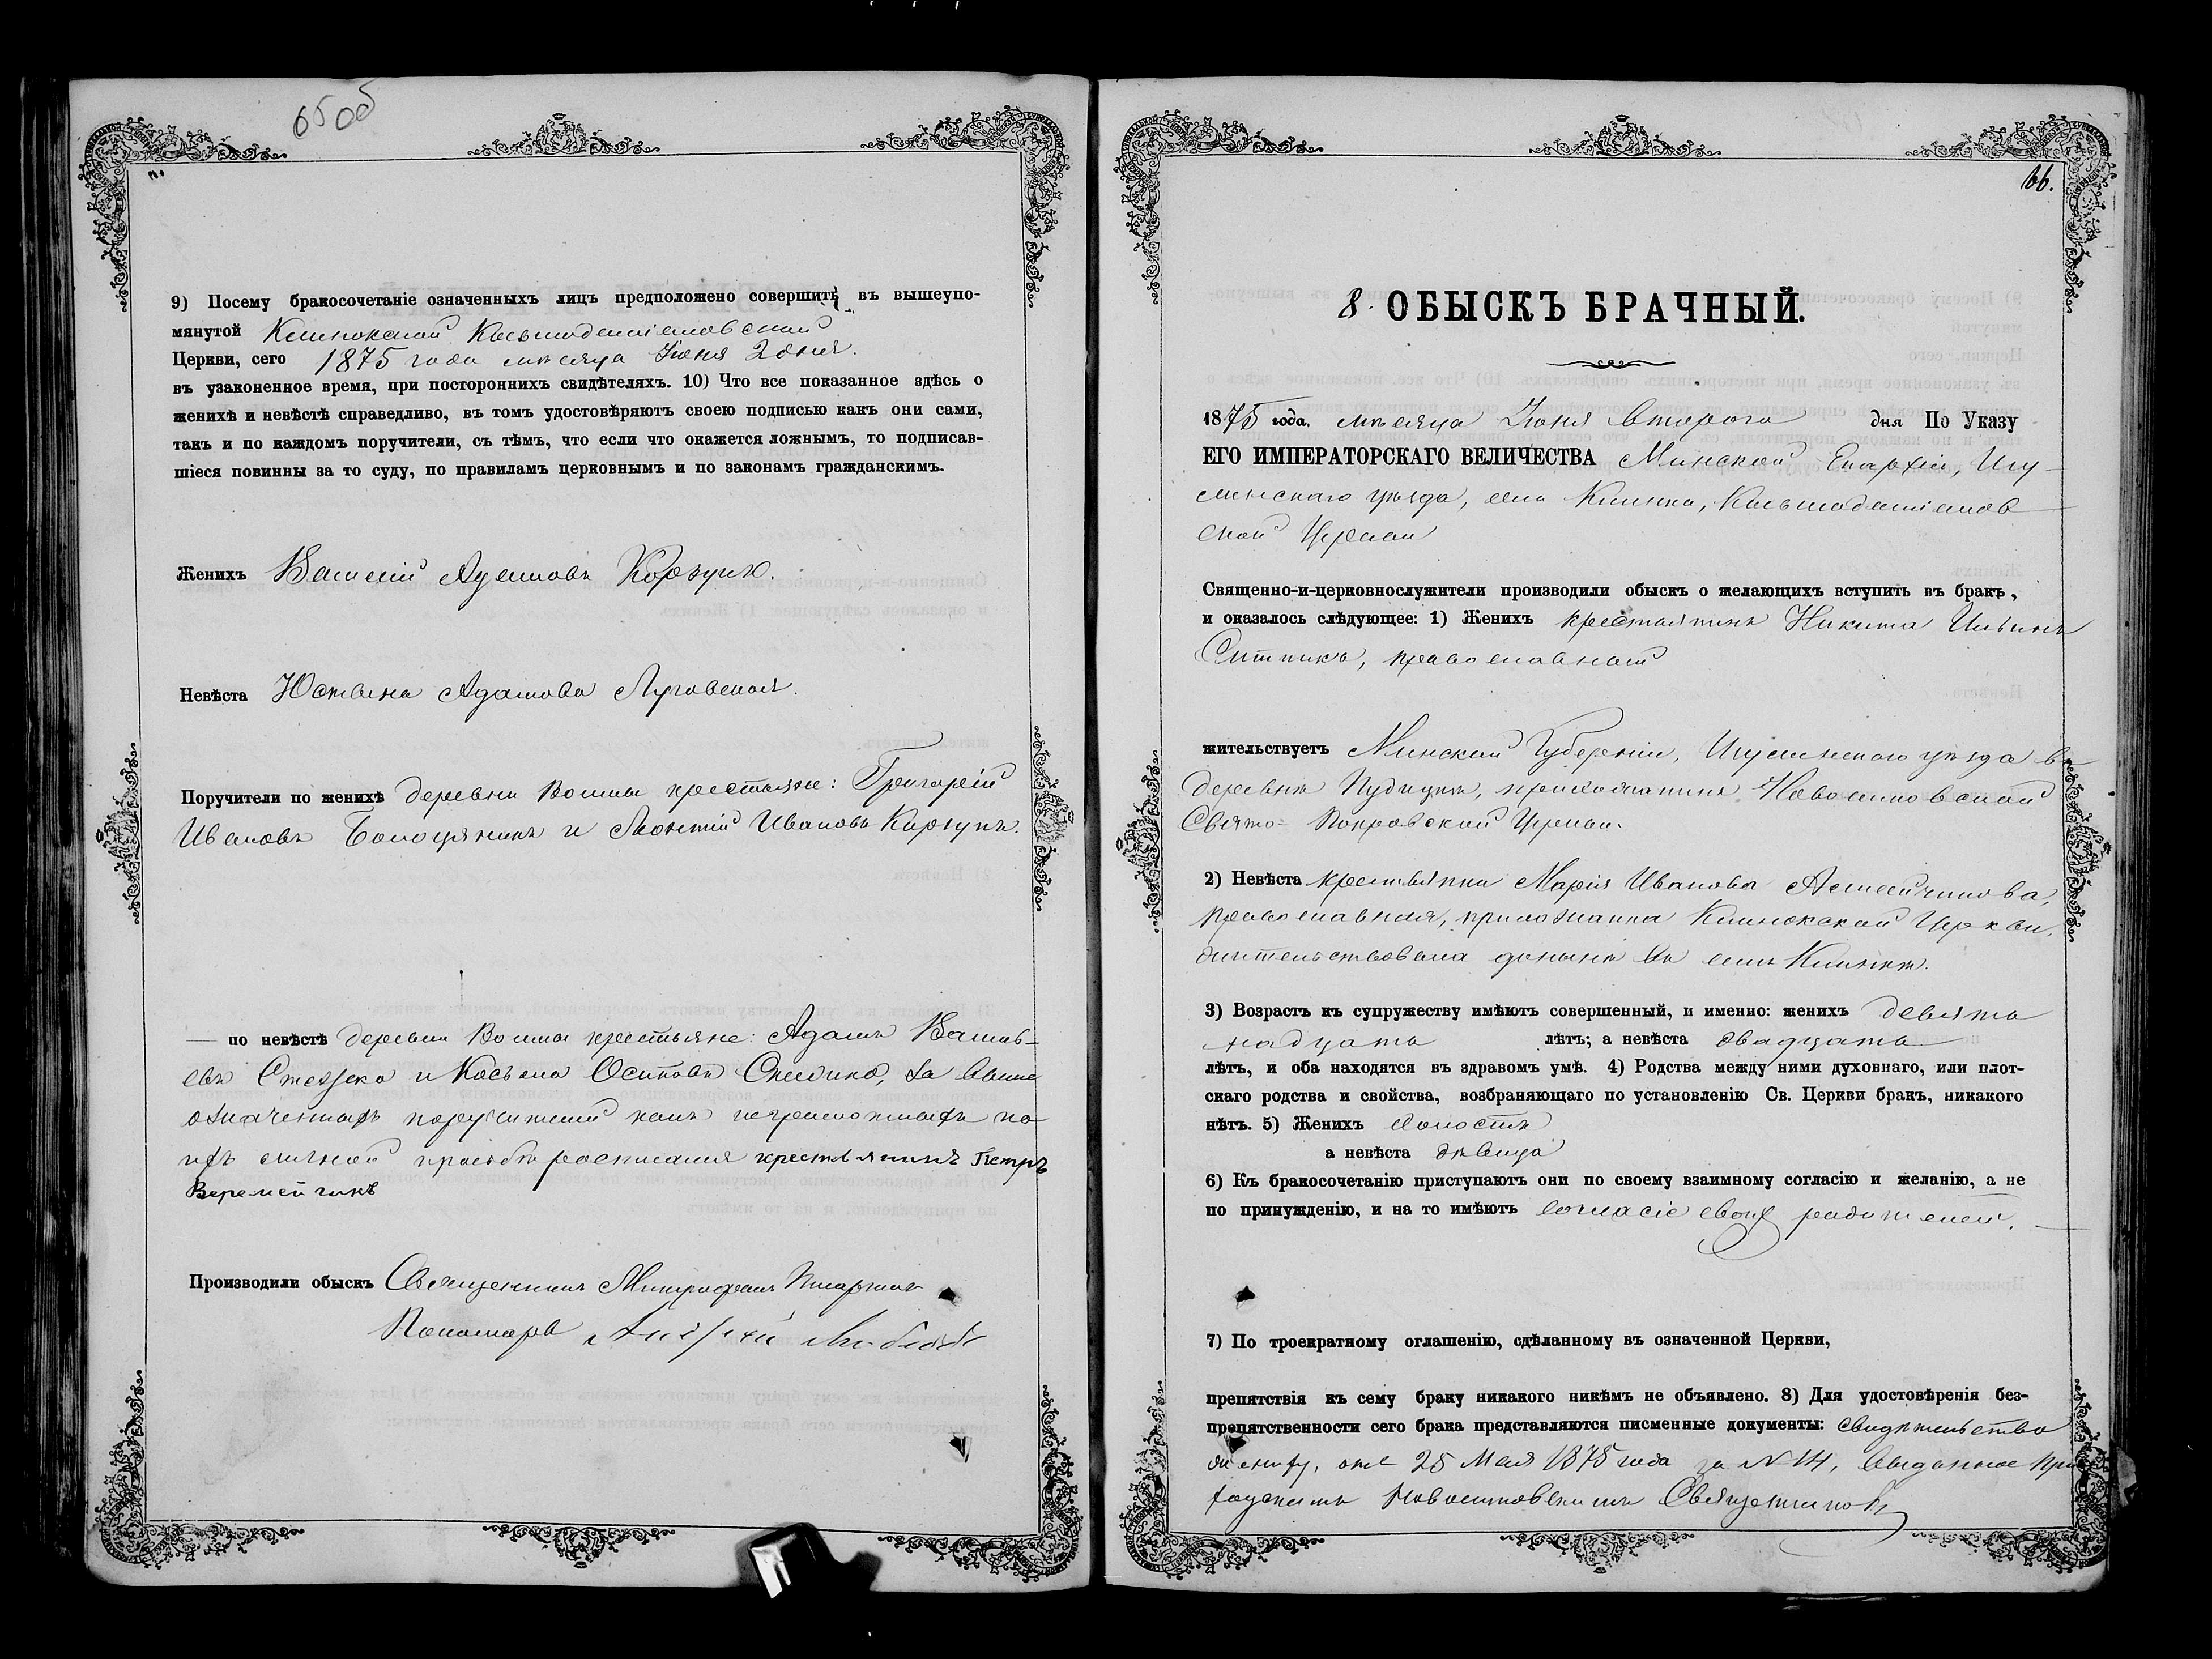 65об
9) Посему бракосочетаніе означенныхъ лицъ предположено совершить въ вышеупо-
мянутой Клинокской Косьмодаміановской
Церкви, сего 1875 года мѣсяца Іюня 2 дня.
въ узаконенное время, при постороннихъ свидѣтеляхъ. 10) Что все показанное здѣсь о
женихѣ и невѣстѣ справедливо, въ томъ удостовѣряютъ своею подписью какъ они сами,
такъ и по каждомъ поручители, съ тѣмъ, что если что окажется ложнымъ, то подписав-
шіеся повинны за то суду, по правиламъ церковнымъ и по законамъ гражданскимъ.
Женихъ Василій Адамовъ Корзунъ.
Невѣста Юстина Адамова Луговская.
Поручители по женихѣ деревни крестьяне: Григорій
Ивановъ и Леонтій Ивановъ Карзунъ.
— по невѣстѣ деревни крестьяне: Адамъ Василь-
евъ и Косьма Осиповъ за выше
означенныхъ поручителей какъ неграмотныхъ по
ихъ личной просьбѣ росписался крестьянинъ Петръ
Веремейчикъ
Производили обыскъ Священникъ Митрофанъ
Пономарь Андрей
66.
8. ОБЫСКЪ БРАЧНЫЙ.
1875 года. мѣсяца Іюня втораго дня По Указу
ЕГО ИМПЕРАТОРСКАГО ВЕЛИЧЕСТВА Минской Епархіи, Игу-
менскаго уѣзда, села Клинка, Косьмодаміанов-
ской Церкви
Священно-и-церковнослужители производили обыскъ о желающихъ вступить въ бракъ,
и оказалось слѣдующее: 1) Женихъ крестьянинъ Никита Ильинъ
Ситникъ, православный
жительствуетъ Минской Губерніи, Игуменскаго уѣзда въ
деревнѣ Пудицкѣ, прихожанинъ Новоселковской
Свято-Покровской Церкви.
2) Невѣста крестьянка Марія Иванова
православная, прихожанка Клинокской Церкви.
жительствовала донынѣ въ селѣ Клинкѣ.
3) Возрастъ къ супружеству имѣютъ совершенный, и именно: женихъ девят-
надцать лѣтъ; а невѣста двадцать
лѣтъ, и оба находятся въ здравомъ умѣ. 4) Родства между ними духовнаго, или плот-
скаго родства и свойства, возбраняющаго по установленію Св. Церкви бракъ, никакого
нѣтъ. 5) Женихъ холостъ
а невѣста дѣвица
6) Къ бракосочетанію приступаютъ они по своему взаимному согласію и желанію, а не
по принужденію, и на то имѣютъ согласіе своихъ родителей.
7) По троекратному оглашенію, сдѣланному въ означенной Церкви,
препятствія къ сему браку никакого никѣмъ не объявлено. 8) Для удостовѣренія без-
препятственности сего брака представляются писменные документы: свидѣтельство
жениху, отъ 25 Мая 1875 года за № 14, выданное При-
ходскимъ Новоселковскимъ Священникомъ